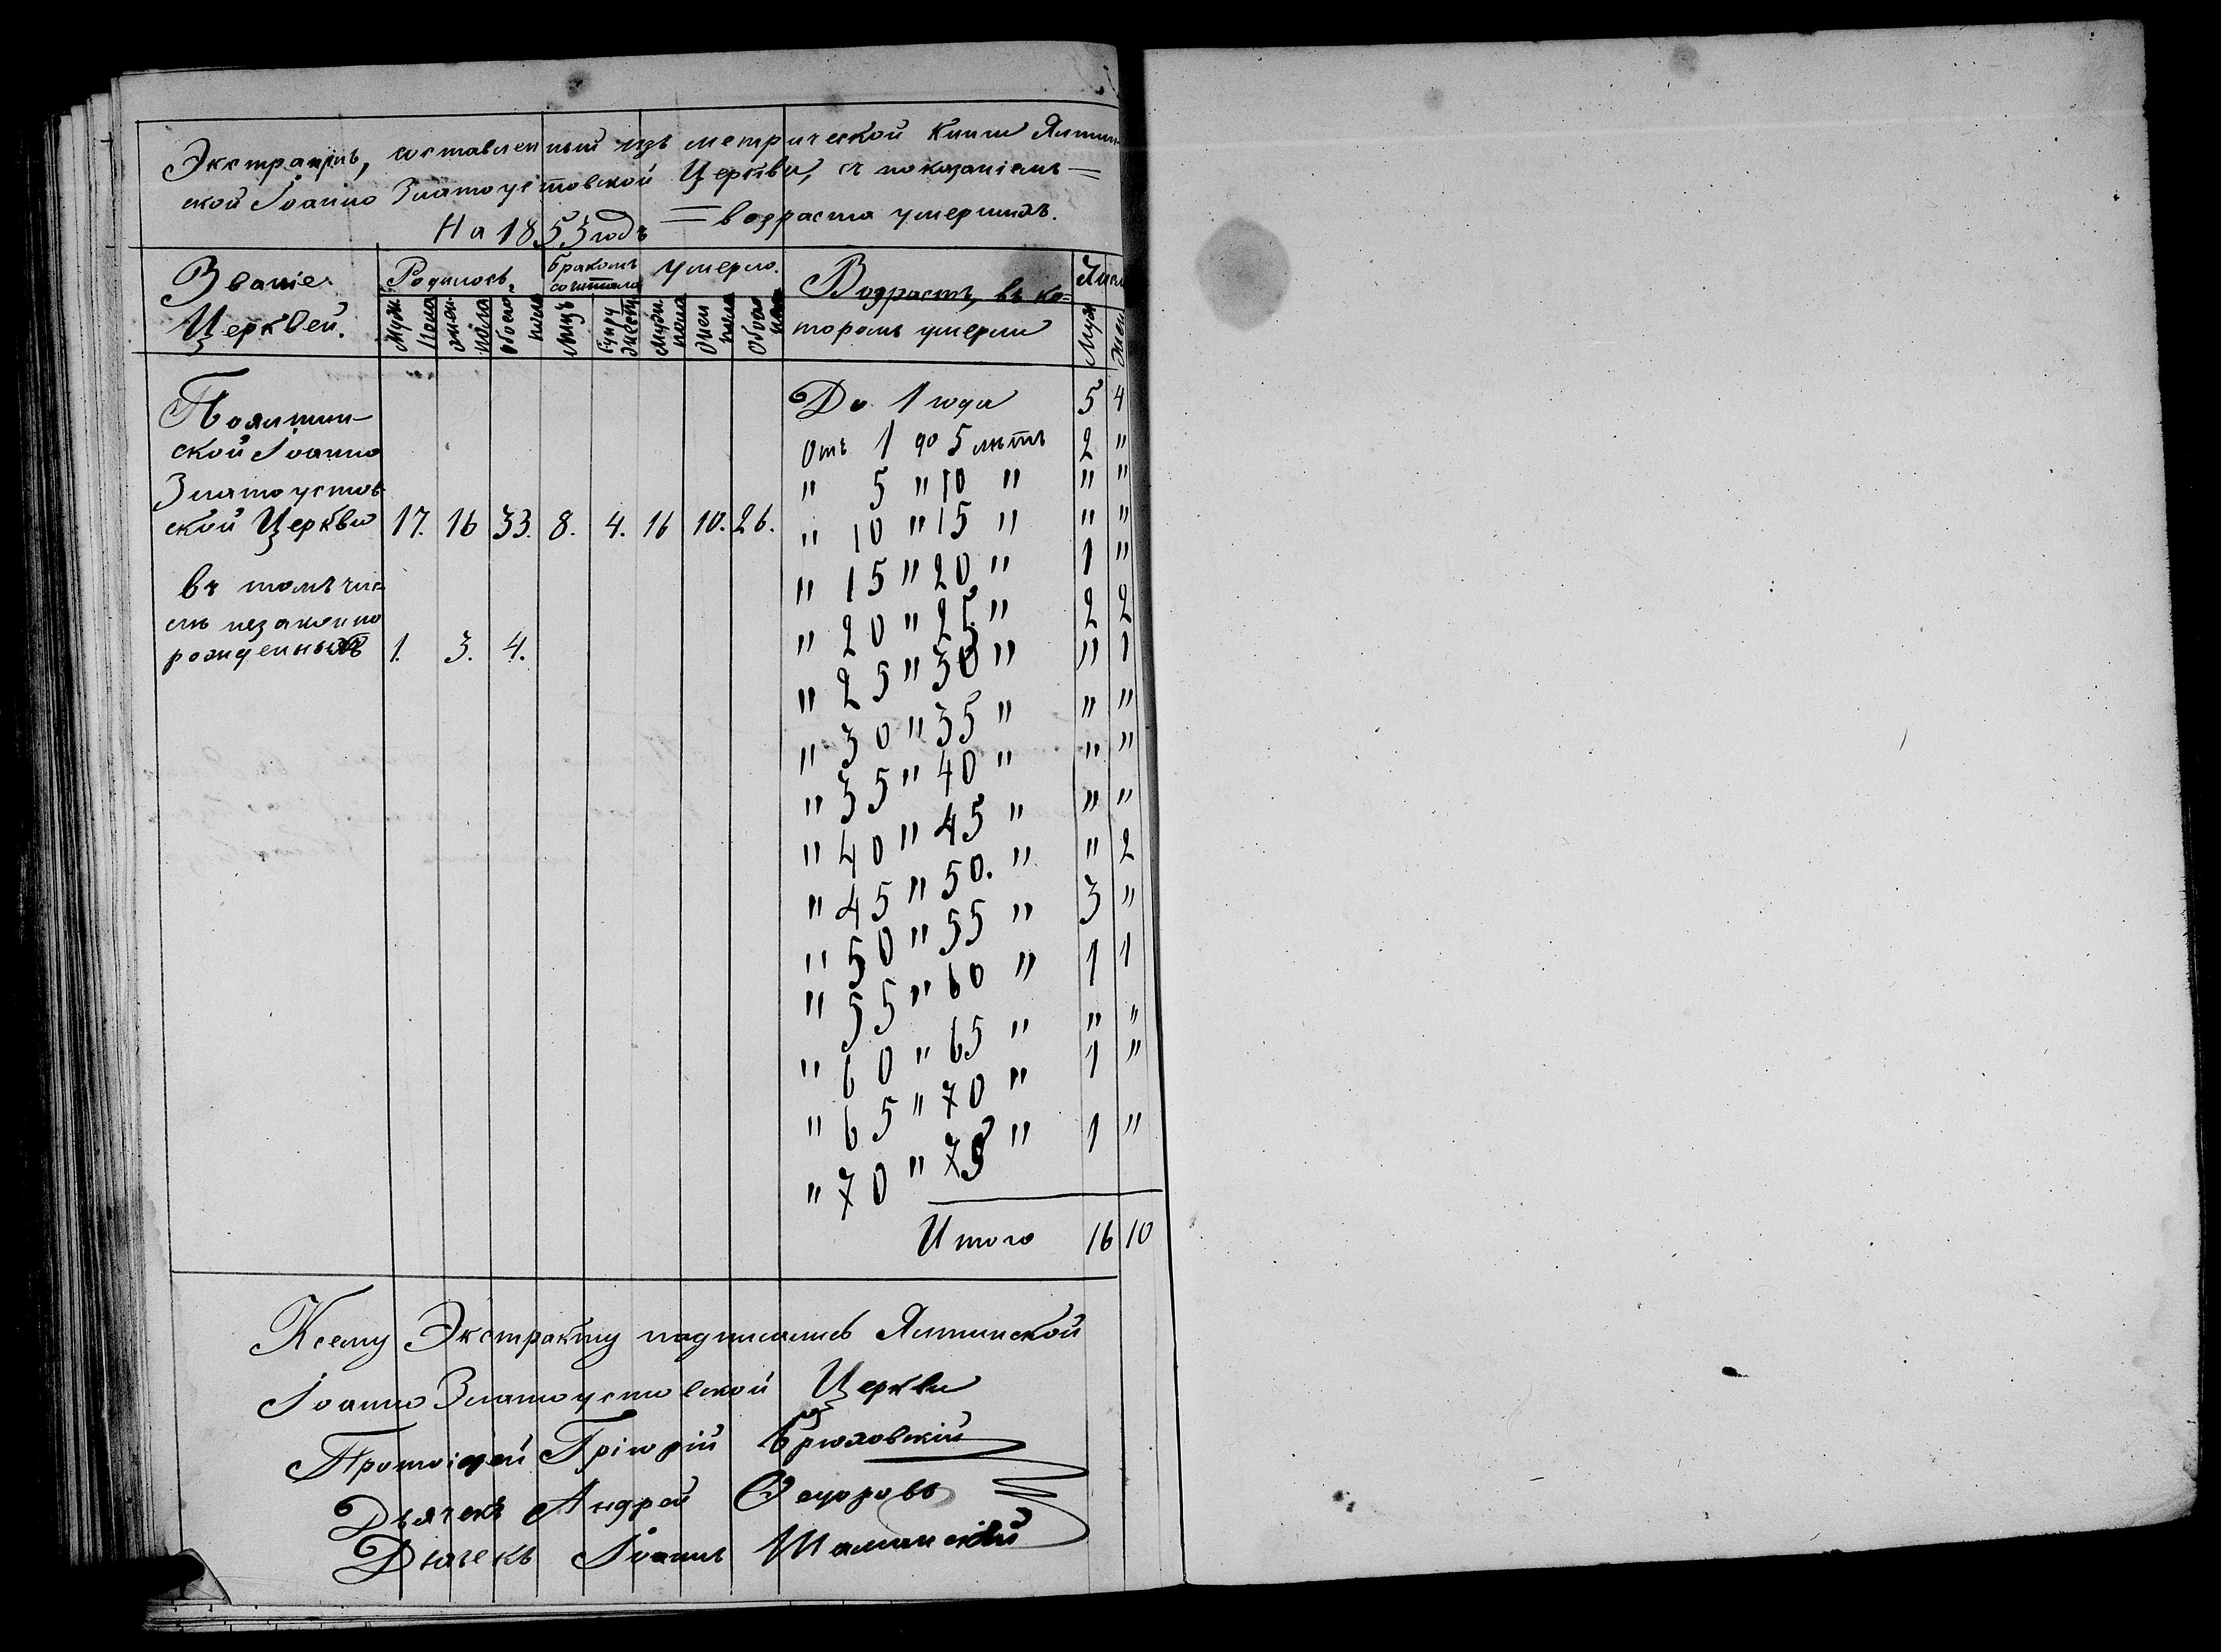 Экстрактъ, составленный изъ метрической книги Ялтин-
ской Іоанно Златоустовской Церкви, съ показаніемъ =
На 1853 годъ = возраста умершихъ.
Званіе Церквей.
Родилось.
Бракомъ сочетало
Умерло.
Возрастъ, въ ко=
торомъ умерли
Числ
Муж. пола
Жен. пола
Обоего пола
Лицъ
Супружеств
Мужс. пола
Жен. пола
Обоего пола
Муж
Жен
По Ялтин-
ской Іоанно
Златоустов
ской Церкви 17. 16 33. 8. 4. 16 10. 26.
въ томъ чис-
лѣ незаконно
рожденныхъ 1. 3. 4.
До 1 года 5 4
Отъ 1 до 5 лѣтъ 2 "
" 5 " 10 " " "
" 10 " 15 " " "
" 15 " 20 " 1 "
" 20 " 25 " 2 2
" 25 " 30 " " 1
" 30 " 35 " " "
" 35 " 40 " " "
" 40 " 45 " " "
" 45 " 50. " " 2
" 50 " 55 " 3 "
" 55 " 60 " 1 1
" 60 " 65 " " "
" 65 " 70 " 1 "
" 70 " 75 " 1 "
Итого 16 10
Ксему Экстракту подписались Ялтинской
Іоанно Златоустовской Церкви
Протоіерей Грігорій
Дьячекъ Андрей Ѳедоровъ
Дьячекъ Іоаннъ